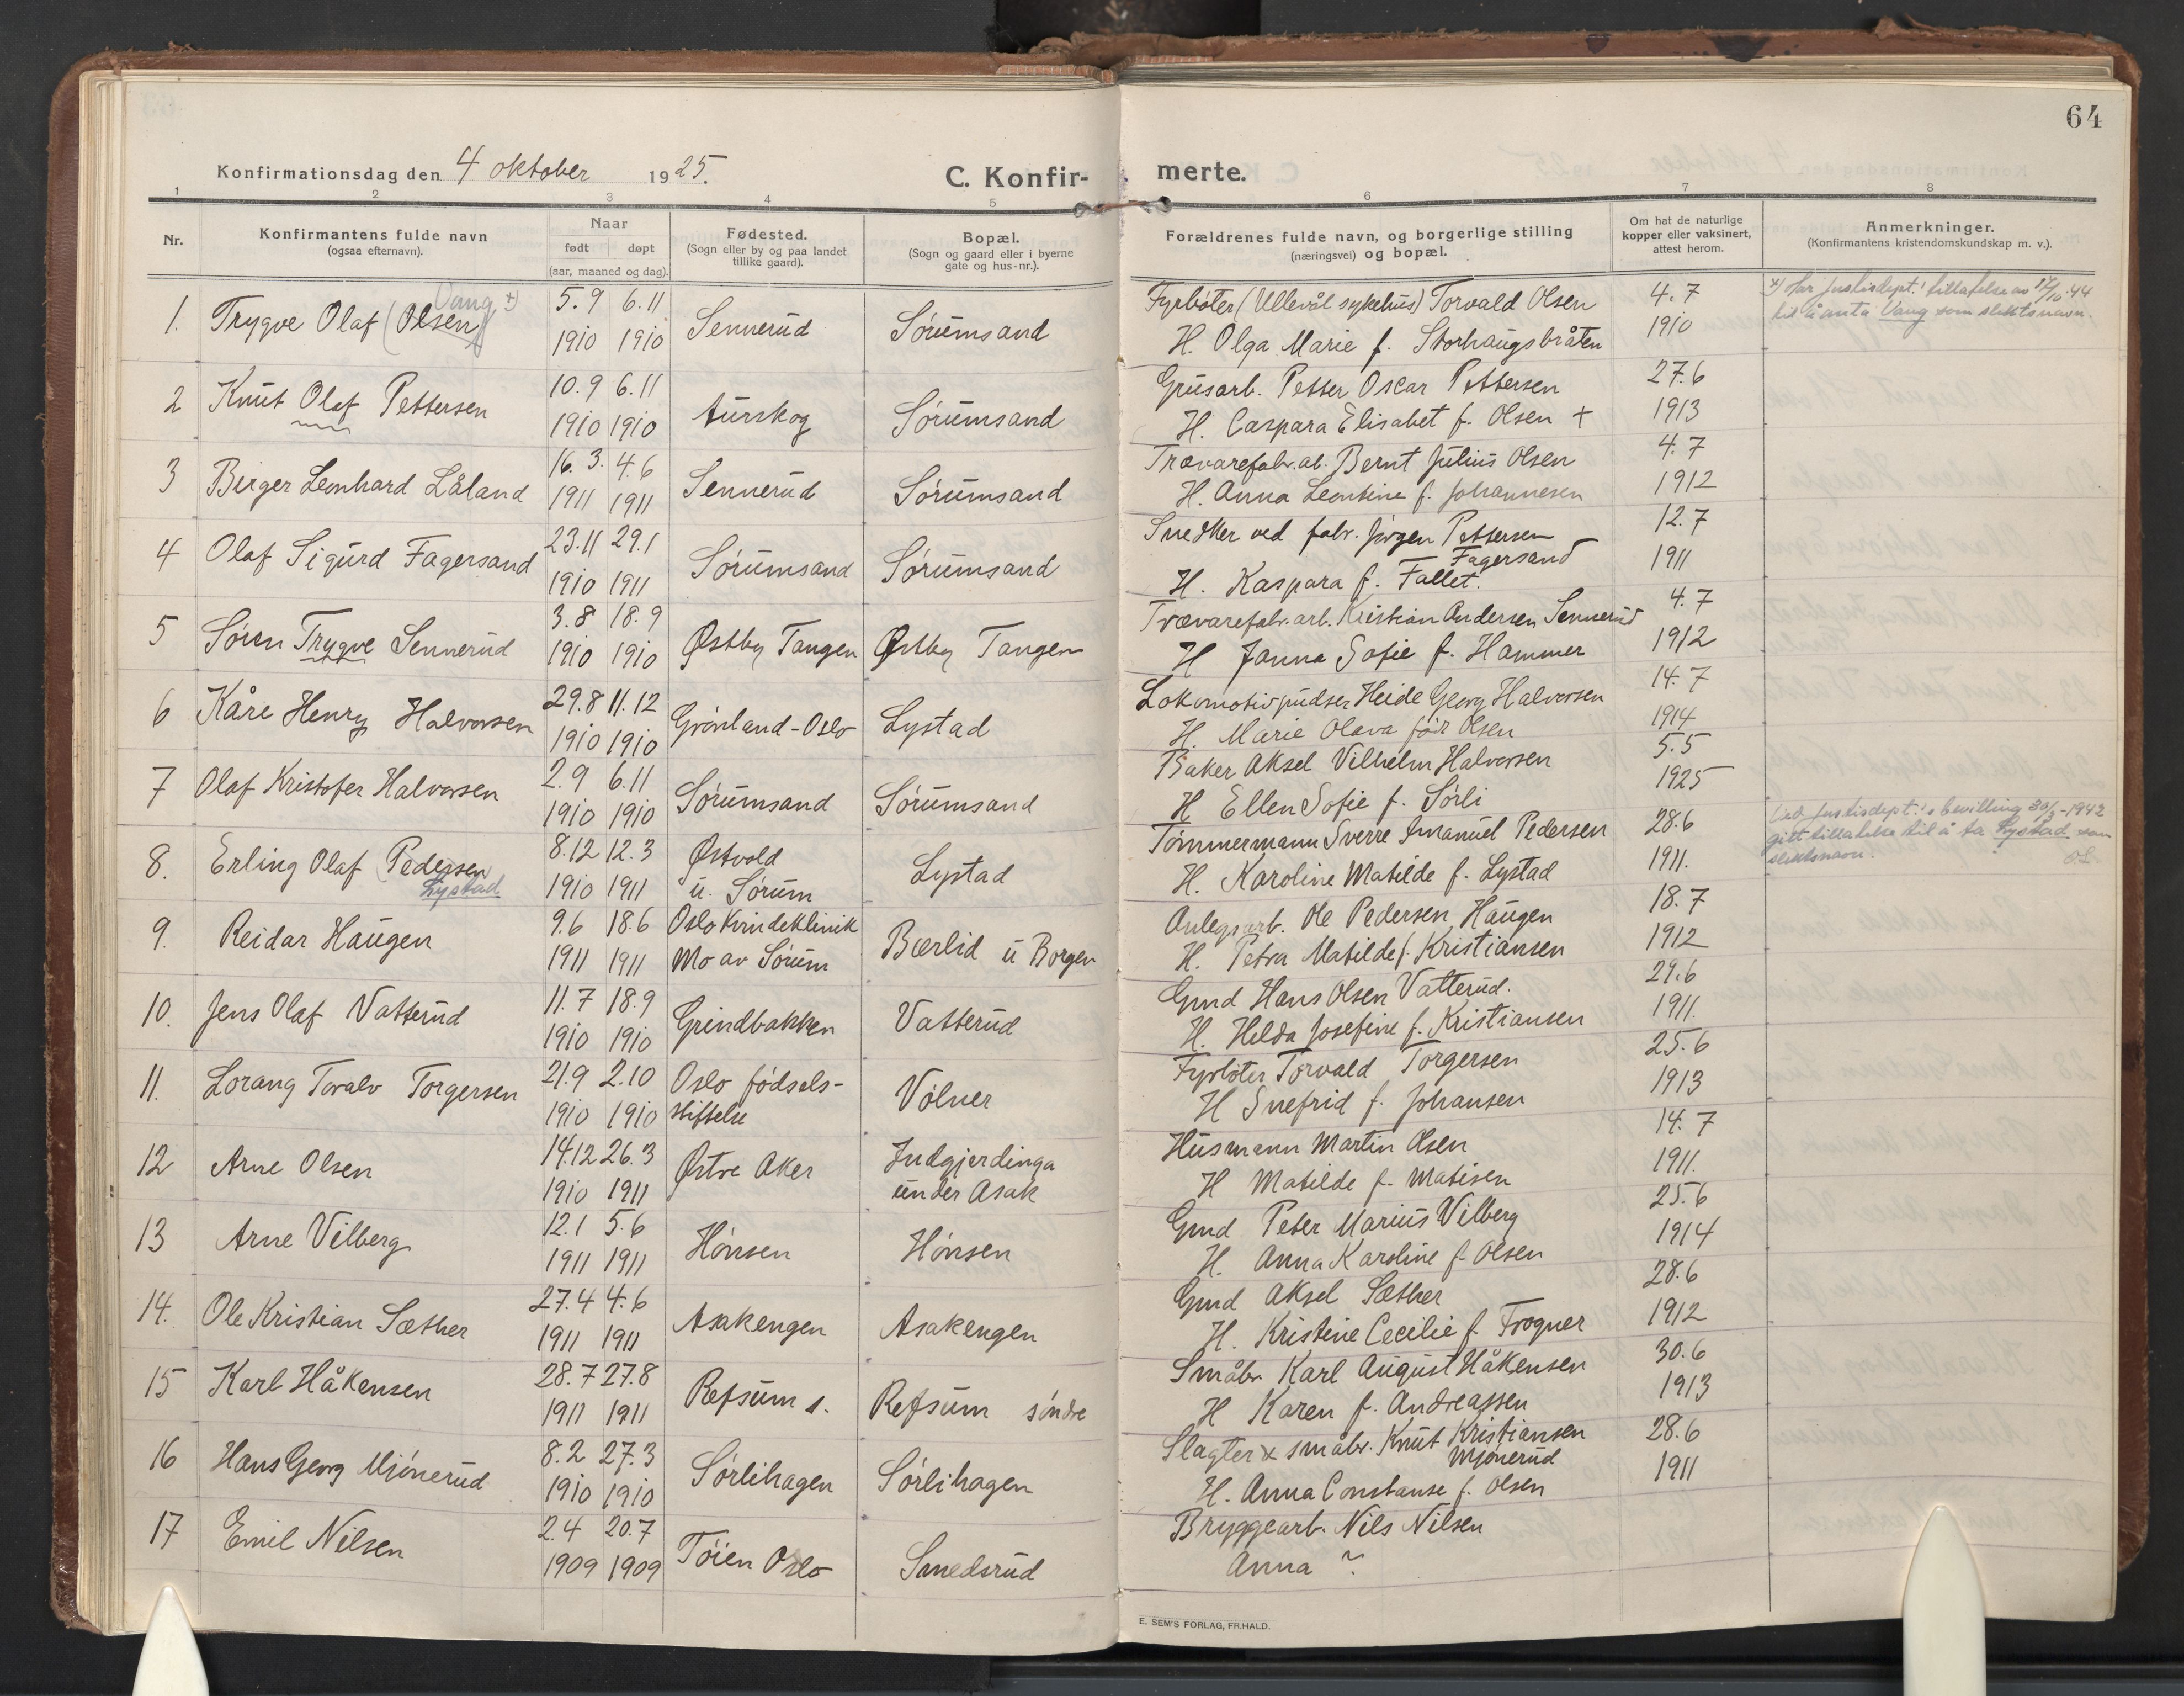 64
Konfirmationsdag den 4 oktober 1925.
C. Konfir-
merte.
1 2 3 4 5 6 7 8
Nr.
Konfirmantens fulde navn
(ogsaa efternavn).
Naar
født døpt
(aar, maaned og dag).
Fødested.
(Sogn eller by og paa landet
tillike gaard).
Bopæl.
(Sogn og gaard eller i byerne
gate og hus-nr.).
Forældrenes fulde navn, og borgerlige stilling
(næringsvei) og bopæl.
Om hat de naturlige
kopper eller vaksinert,
attest herom.
Anmerkninger.
(Konfirmantens kristendomskundskap m. v.).
Vang x)
1. Trygve Olaf (Olsen) 5.9 6.11 Sennerud Sørumsand Fyrbøter (Ullevål sykehus) Torvald Olsen 4.7 x) Har Justisdept.s tillatelse av 17/10.44
1910 1910 H. Olga Marie f. Storhaugsbråten 1910 til å anta Vang som slektsnavn.
2 Knut Olaf Pettersen 10.9 6.11 Aurskog Sørumsand Grusarb. Petter Oscar Pettersen 27.6
1910 1910 H. Caspara Elisabet f. Olsen + 1913
3 Birger Leonhard Låland 16.3. 4.6 Sennerud Sørumsand Trævarefabr.ab. Bernt Julius Olsen 4.7
1911 1911 H. Anna Leontine f. Johannesen 1912
4 Olaf Sigurd Fagersand 23.11 29.1 Sørumsand Sørumsand Snedker ved fabr. Jørgen Pettersen 12.7
Fagersand
1910 1911 H. Kaspara f. Fallet. 1911
5 Søren Trygve Sennerud 3.8 18.9 Østby Tangen Østby Tangen Trævarefabr.arb. Kristian Andersen Sennerud 4.7
1910 1910 H Janna Sofie f. Hammer 1912
6 Kåre Henry Halvorsen 29.8 11.12 Grønland-Oslo Lystad Lokomotivpudser Heide Georg Halvorsen 14.7
1910 1910 H. Marie Olava før Olsen 1914
7 Olaf Kristofer Halvorsen 2.9 6.11 Sørumsand Sørumsand Baker Aksel Vilhelm Halvorsen 5.5
1910 1910 H Ellen Sofie f. Sørli 1925
8. Erling Olaf Pedersen 8.12 12.3 Østvold Lystad Tømmermann Sverre Imanuel Pedersen 28.6 Ved Justisdept.s bevilling 30/3-1942
Lystad 1910 1911 u. Sørum H. Karoline Matilde f. Lystad 1911. gitt tillatelse til å ta Lystad som
slektsnavn. O.L.
9. Reidar Haugen 9.6 18.6 Oslo Kvindeklinik Bærlid u Borgen Anlegsarb. Ole Pedersen Haugen 18.7
1911 1911 Mo av Sørum H. Petra Matilde f. Kristiansen 1912
10. Jens Olaf Vatterud 11.7 18.9 Grindbakken Vatterud Gmd Hans Olsen Vatterud. 29.6
1910 1910 H. Helda Josefine f. Kristiansen 1911.
11. Lorang Toralv Torgersen 21.9 2.10 Oslo fødsels- Vølner Fyrbøter Torvald Torgersen 25.6
1910 1910 stiftelse H Snefrid f. Johansen 1913
12 Arne Olsen 14.12 26.3 Østre Aker Indgjerdinga Husmann Martin Olsen 14.7
1910 1911 under Asak H Matilde f. Matisen 1911.
13 Arne Vilberg 12.1 5.6 Hønsen Hønsen Gmd Peter Marius Vilberg 25.6
1911 1911 H. Anna Karoline f. Olsen 1914
14. Ole Kristian Sæther 27.4 4.6 Asakengen Asakengen Gmd Aksel Sæther 28.6
1911 1911 H. Kristine Cecilie f. Frogner 1912
15 Karl Håkensen 28.7 27.8 Refsum s. Refsum søndre Småbr. Karl August Håkensen 30.6
1911 1911 H Karen f. Andreassen 1913
16 Hans Georg Mjønerud 8.2 27.3 Sørlihagen Sørlihagen Slagter & småbr. Knut Kristiansen 28.6
Mjønerud
1910 1910 H. Anna Constanse f. Olsen 1911
17 Emil Nilsen 2.4 20.7 Tøien Oslo Smedsrud Bryggearb. Nils Nilsen
1909 1909 Anna ~
E. SEM'S FORLAG, FR.HALD.